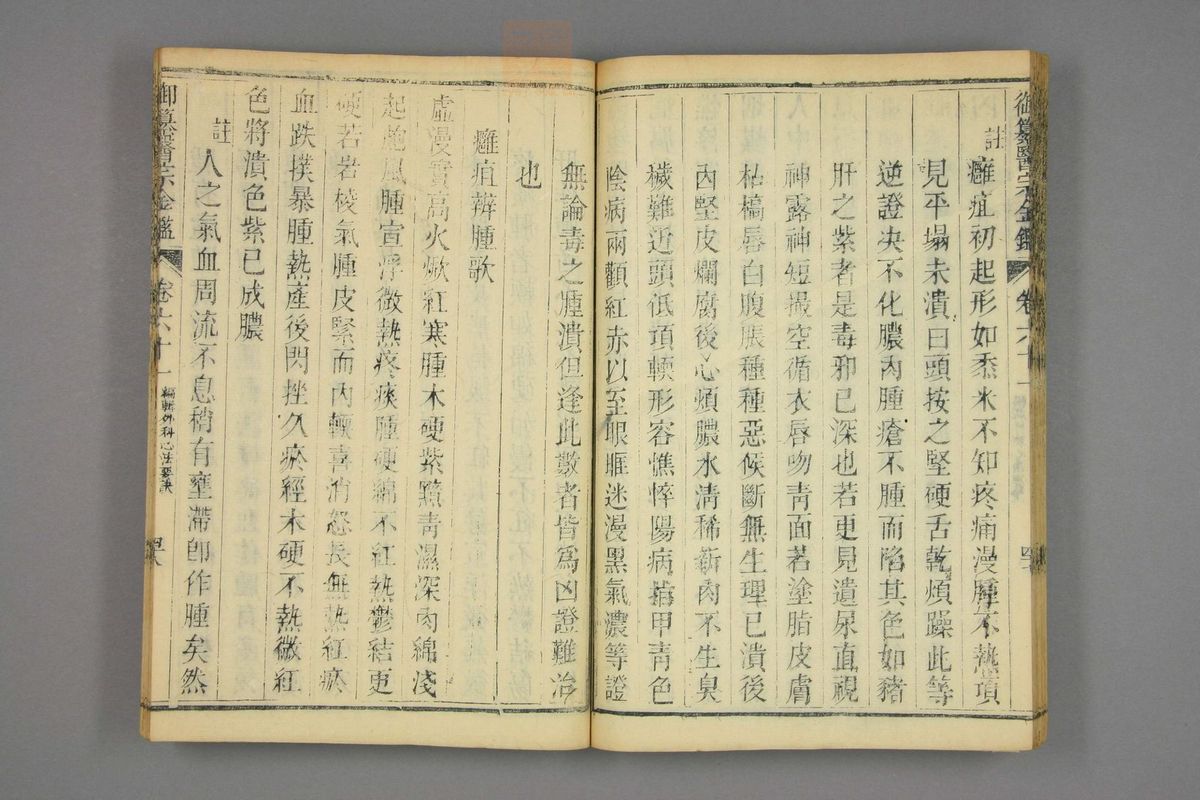 御纂醫宗金鑑 卷六十一
註癰疽初起形如黍米不知疼痛漫腫不熱項
見平塌未潰曰頭按之堅硬舌乾煩躁此等
逆證决不化膿肉腫瘡不腫而陷其色如豬
肝之紫者是毒邪已深也若更見遺尿直視
神露神短撮空循衣唇吻青面若塗脂皮膚
枯槁唇白腹脹種種惡候斷無生理已潰後
內堅皮爛腐後心煩膿水清稀新肉不生臭
穢難近頭低項輭形容憔悴陽病指甲青色
陰病兩顴紅赤以至眼眶迷漫黑氣濃等證
無論毒之腫潰但逢此數者皆為凶證難治
也
癰疽辨腫歌
虛漫實高火焮紅寒腫木硬紫黯青濕深肉綿淺
起皰風腫宣浮微熱疼痰腫硬綿不紅熱鬱結更
硬若岩棱氣腫皮緊而內輭喜消怒長無熱紅瘀
血跌撲暴腫熱產後閃挫久瘀經木硬不熱微紅
色將潰色紫已成膿
註人之氣血周流不息稍有壅滯卽作腫矣然
御纂醫宗金鑑 卷六十一 編輯外科心法要訣 四十八